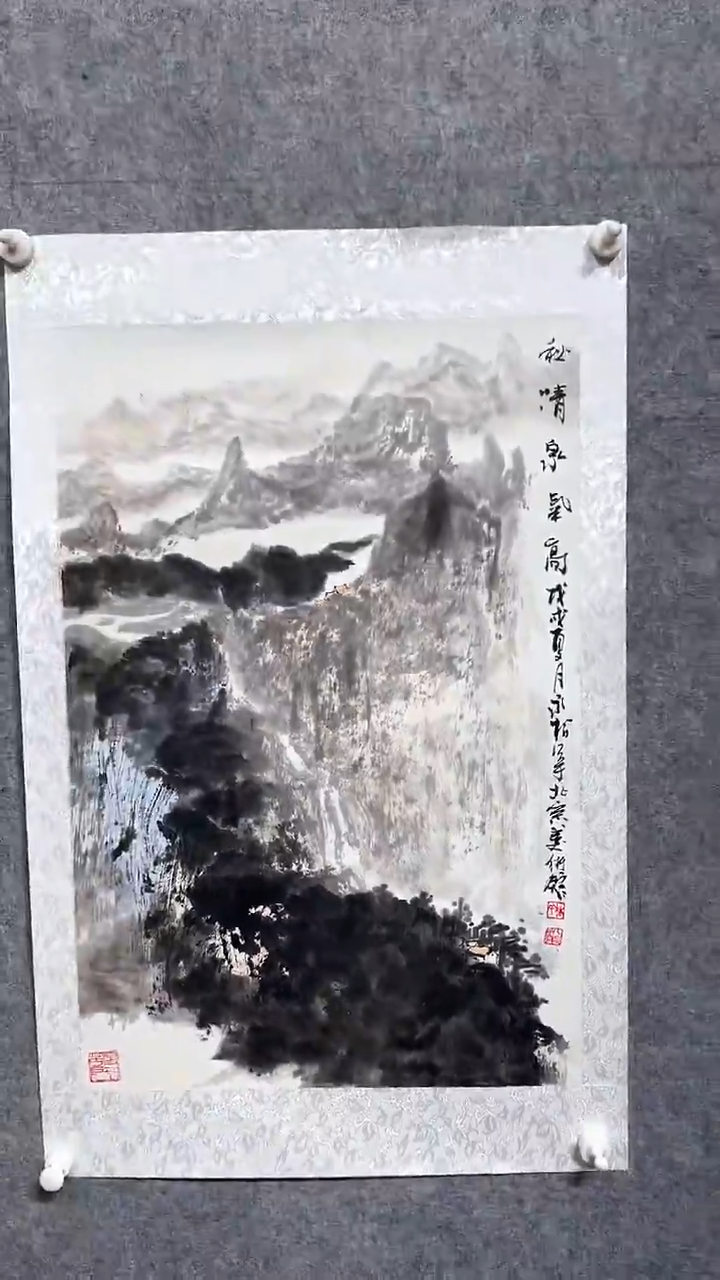 秋晴泉氣高戊戌夏月永松写北京美術館